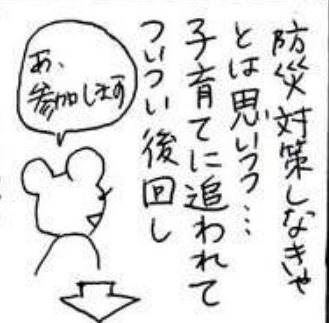 防災対策しなきゃ
とは思いつつ…
子育てに追われて
ついつい後回し
あ、
参加します